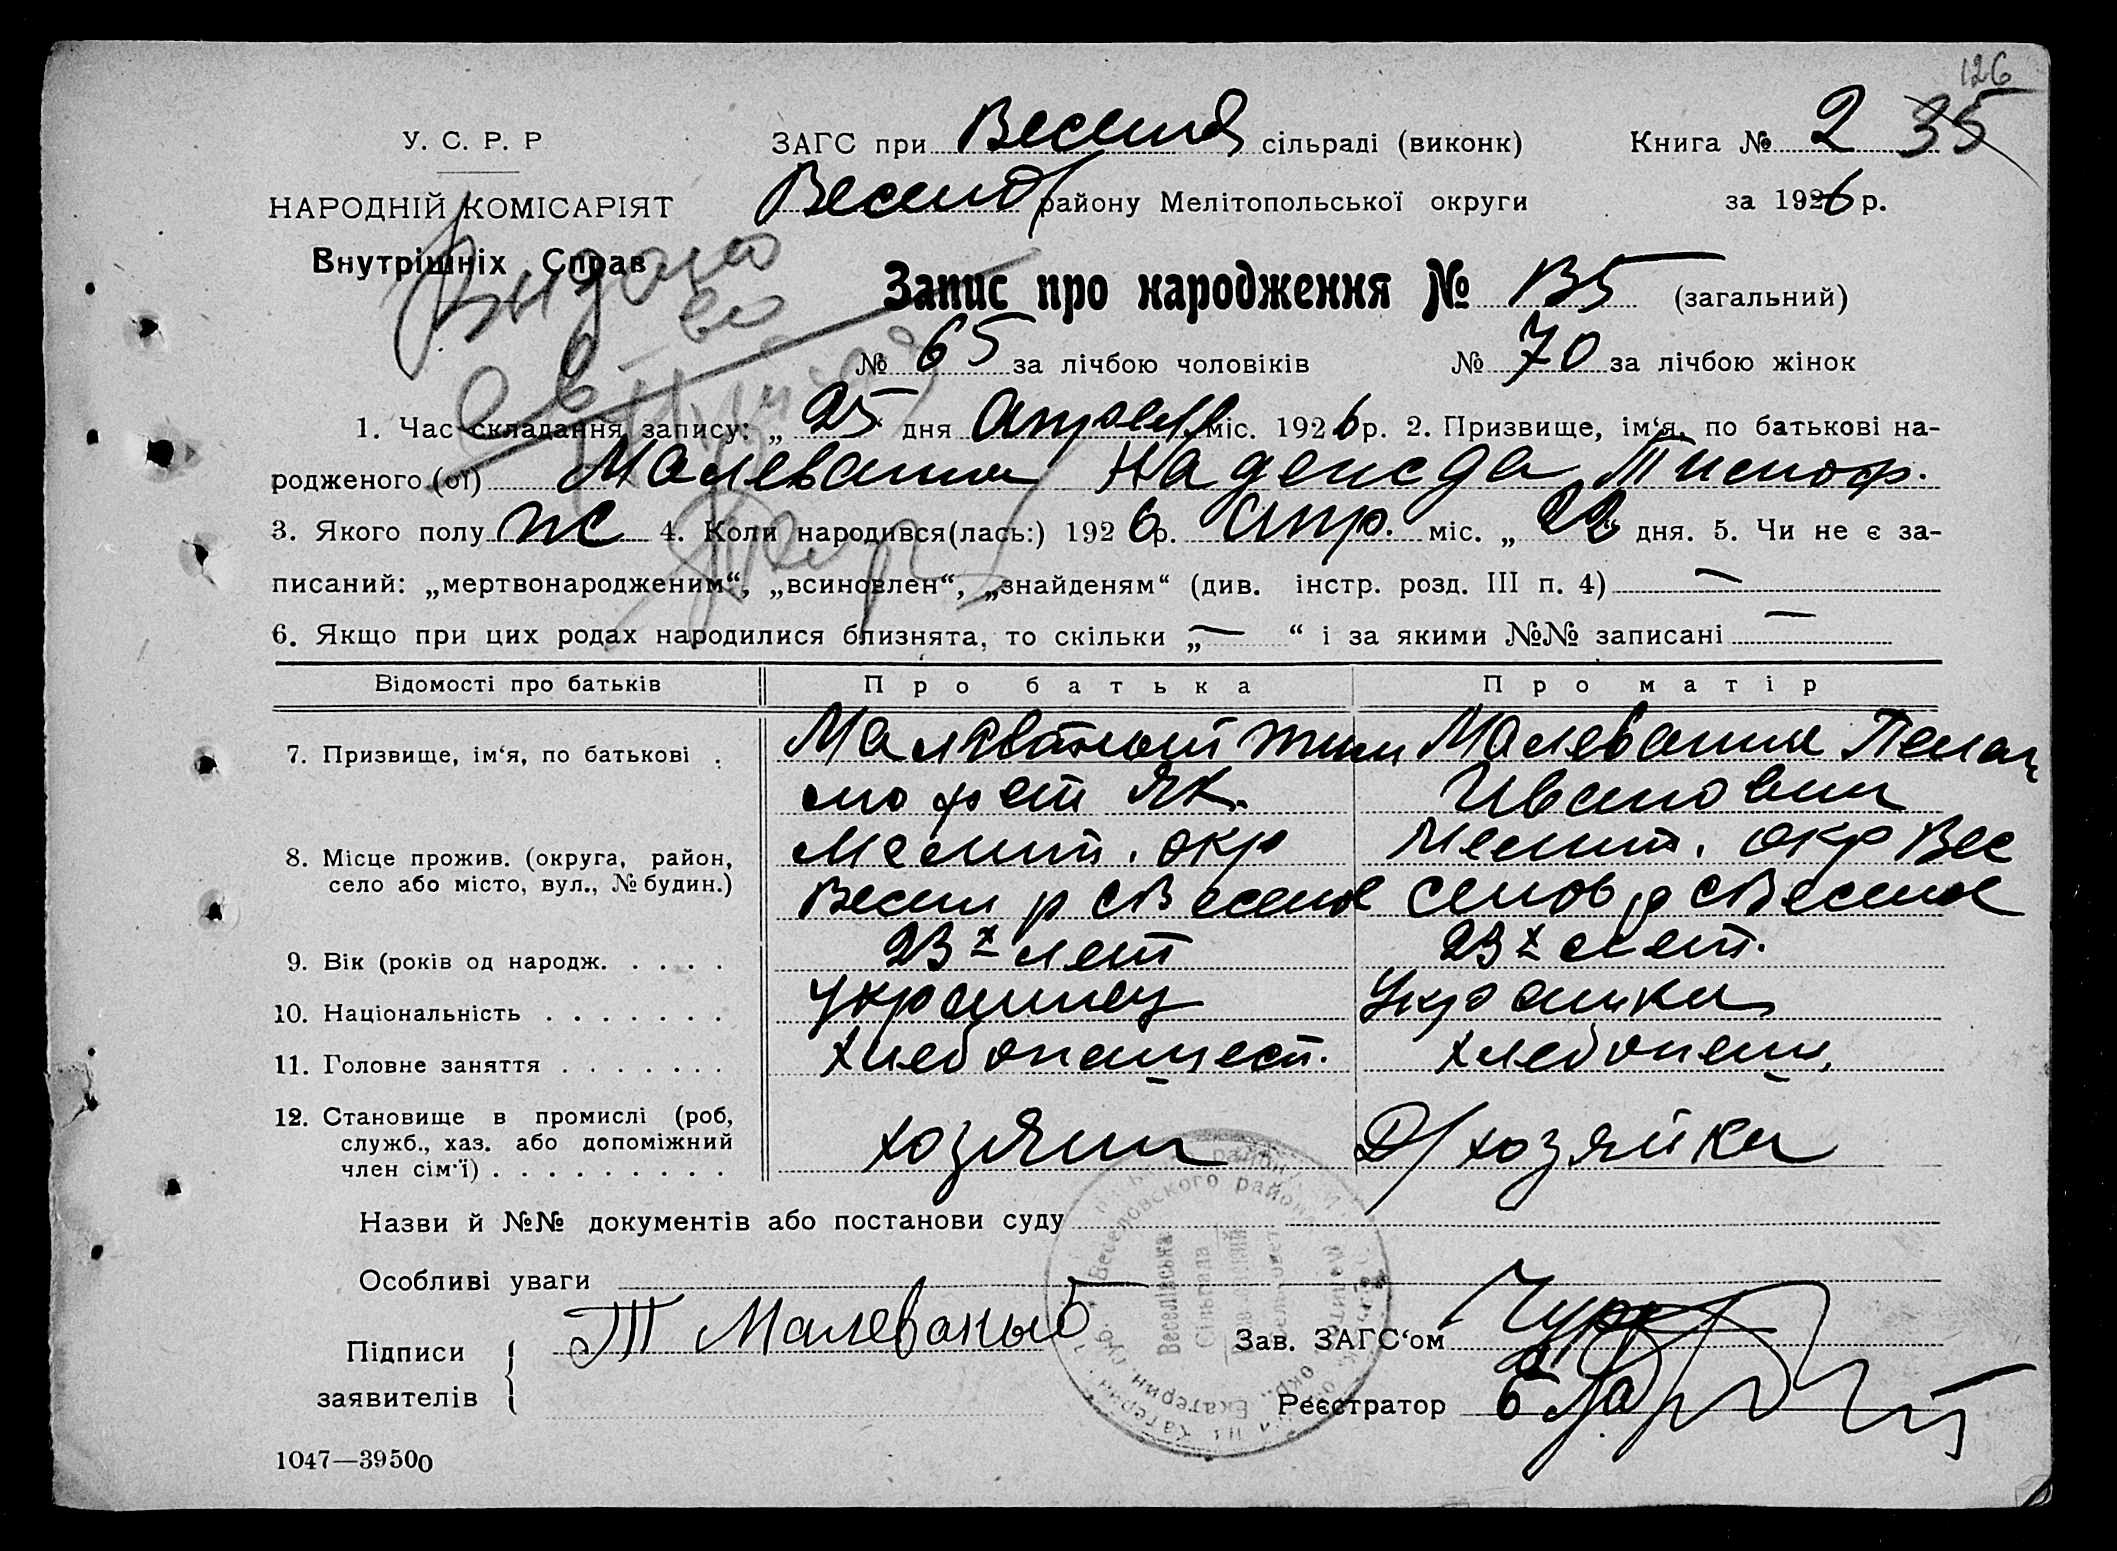 126
У. С. Р. Р
ЗАГС при Весели сільраді (виконк) Книга № 2 35
НАРОДНІЙ КОМІСАРІЯТ
Весел району Мелітопольської округи за 1926 р.
Внутрішніх Справ
Видано
Запис про народження № 135 (загальний)
№ 65 за лічбою чоловіків № 70 за лічбою жінок
1. Час складання запису: „ 25 дня Апреля міс. 1926 р. 2. Призвище, ім‘я, по батькові на-
родженого (ої) Малеванна Надежда Тимоф.
3. Якого полу ж 4. Коли народився(лась:) 1926 р. Апр. міс. „ 22 дня. 5. Чи не є за-
писаний: „мертвонародженим“, „всиновлен“, „знайденям“ (див. інстр. розд. III п. 4) —
6. Якщо при цих родах народилися близнята, то скільки „ — “ і за якими №№ записані —
Відомості про батьків Про батька Про матір
7. Призвище, ім‘я, по батькові . Малеваный Тим Малеванна Пелаг
мофей Як. Ивановна
8. Місце прожив. (округа, район, Мелит. окр Мелит. окр Вес
село або місто, вул., № будин.) Весел р с Веселое селов р с Веселое
9. Вік (років од народж. . . . . 23х лет 23х лет.
10. Національність . . . . . . . Украинец Украинка
11. Головне заняття . . . . . . . хлебопашест. хлебопаш.
12. Становище в промислі (роб,
служб., хаз. або допоміжний хозяин Д/хозяйка
член сім‘ї) . . . . . . . . .
Назви й №№ документів або постанови суду
Особливі уваги —
Підписи
заявителів
Т Малеваный
Зав. ЗАГС‘ом
Реєстратор
Веселовского района
Веселівська
Сільрада
1047—39500